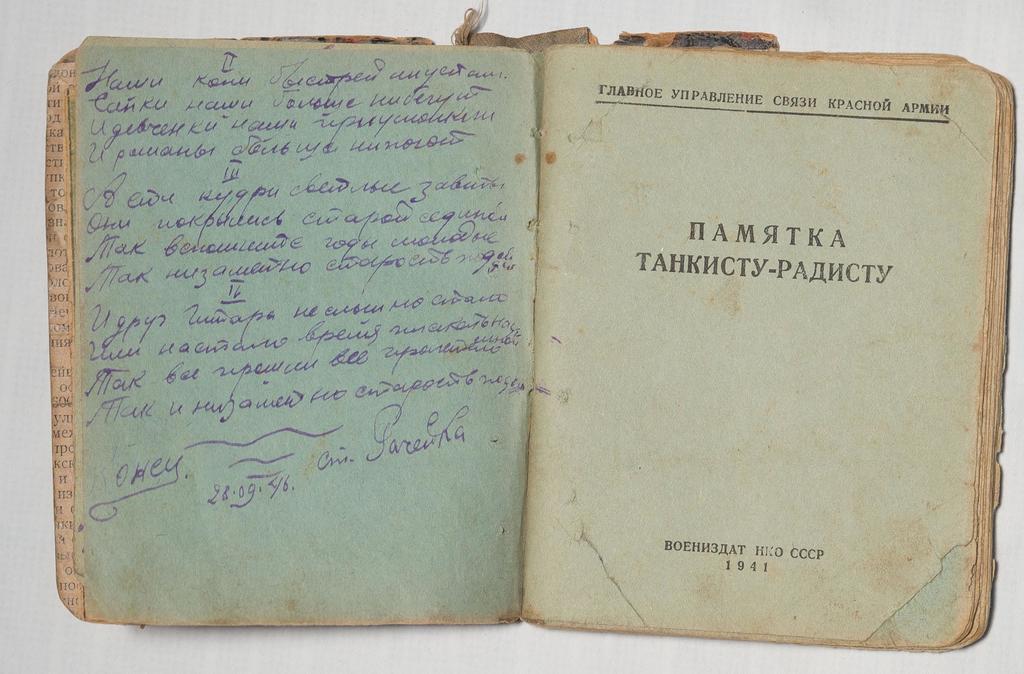 II
Наши кони быстрей
Санки наши больше нибегут
И девченки наши приумолкли
И романы больше
III
А сти кудри светлые завиты
Они покрылись старой сединой
Так вспомните годы молодые
Так низаметно старость подойдёт
IV
И друг Гитары неслышно стало
Или настало время
Так все прошли все пролетело
Так и низаметно старость
Конец.
ст. Рачейка
28.09.46.
ГЛАВНОЕ УПРАВЛЕНИЕ СВЯЗИ КРАСНОЙ АРМИИ
ПАМЯТКА
ТАНКИСТУ-РАДИСТУ
ВОЕНИЗДАТ НКО СССР
1941